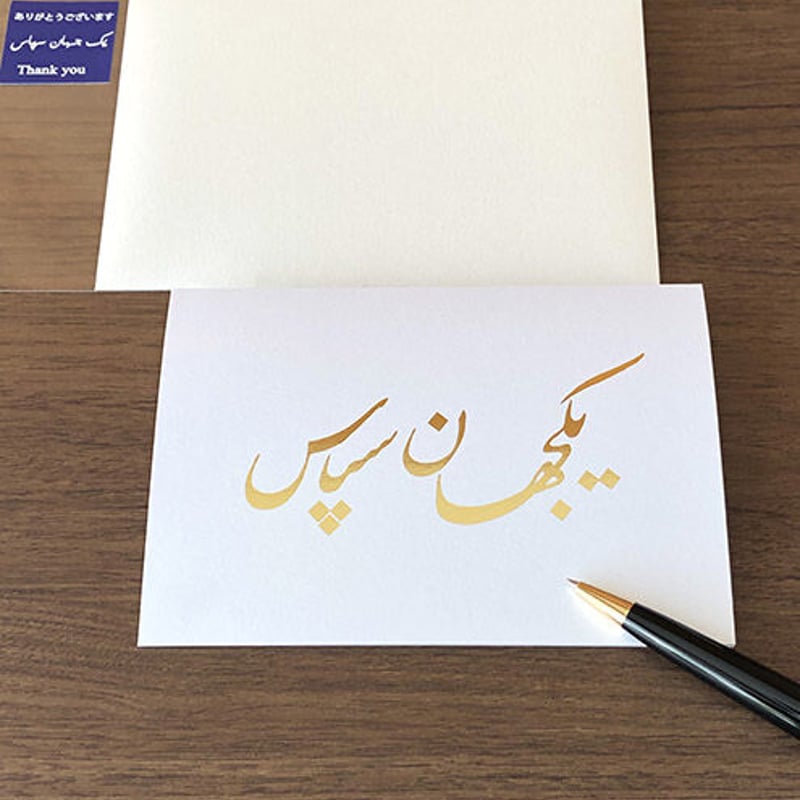 ありがとうございます
یک جهان سپاس
Thank you
یکجهان سپاس